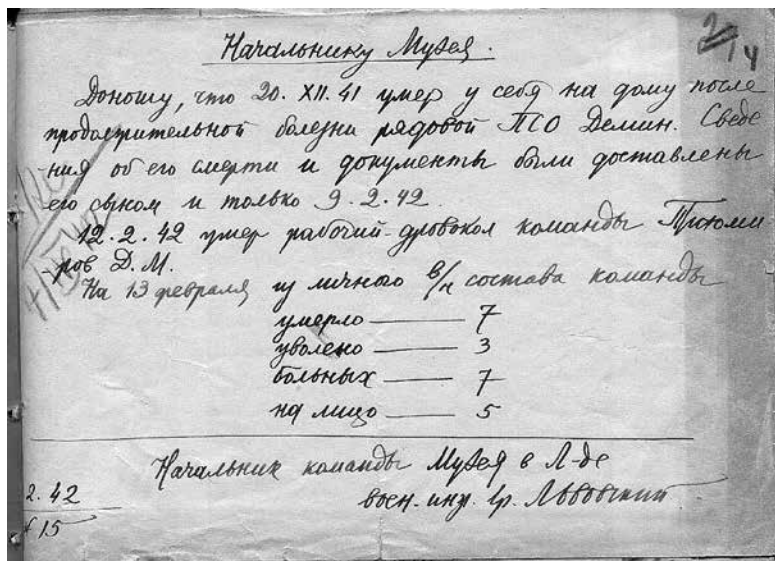 2/14
Начальнику Музея.
Доношу, что 20.XII.41 умер у себя на дому после
продолжительной болезни рядовой ПСО Демин. Сведе
ния об его смерти и документы были доставлены
его сыном и только 9.2.42.
12.2.42 умер рабочий-дровокол команды
ров Д.М.
На 13 февраля из личного в/н состава команды
умерло — 7
уволено — 3
больных — 7
на лицо — 5
Начальник команды Музея в Л-де
воен. инж. Львовский
2.42
15